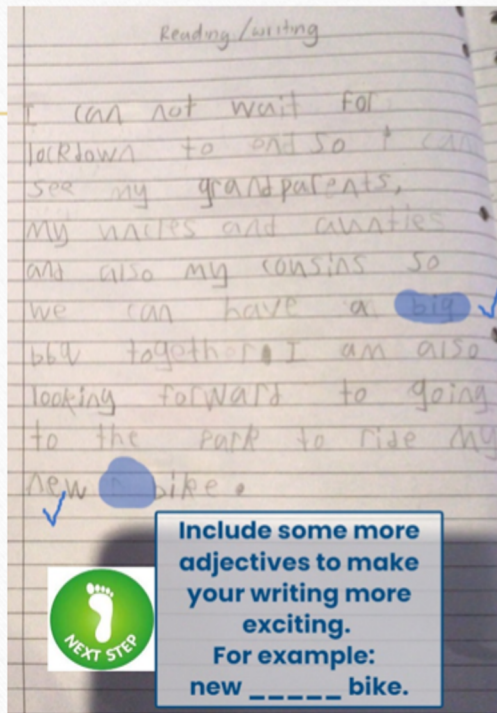 Reading/writing
I can not wait for
lockdown to end so I can
see my grandparents,
my uncles and aunties
and also my cousins so
we can have a big
bbq together. I am also
looking forward to going
to the park to ride my
new bike.
Include some more
adjectives to make
your writing more
exciting.
For example:
new _____ bike.
NEXT STEP